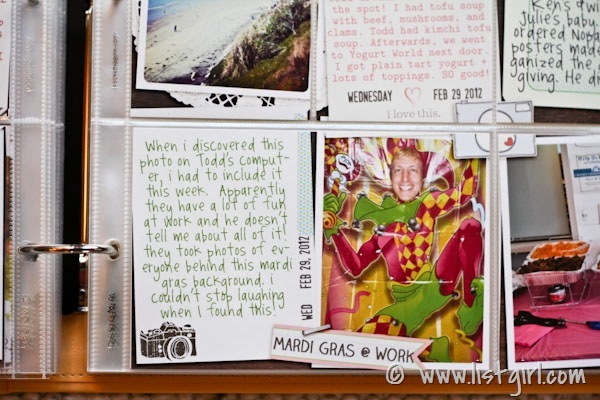 the spot! I had tofu soup
with beef, mushrooms, and
clams. Todd had kimchi tofu
soup. Afterwards, we went
to Yogurt World next door.
I got plain tart yogurt +
lots of toppings. SO good!
WEDNESDAY FEB 29 2012
i love this.
Ken's dw
julies baby
ordered Nopa
posters made
ganized the g
giving. He di
When i discovered this
photo on Todd's comput-
er, i had to include it
this week. Apparently
they have a lot of fun
at work and he doesn't
tell me about all of it!
they took photos of ev-
eryone behind this mardi
gras background. i
couldn't stop laughing
when I found this!
WED FEB 29, 2012
MARDI GRAS @ WORK
© www.listgirl.com